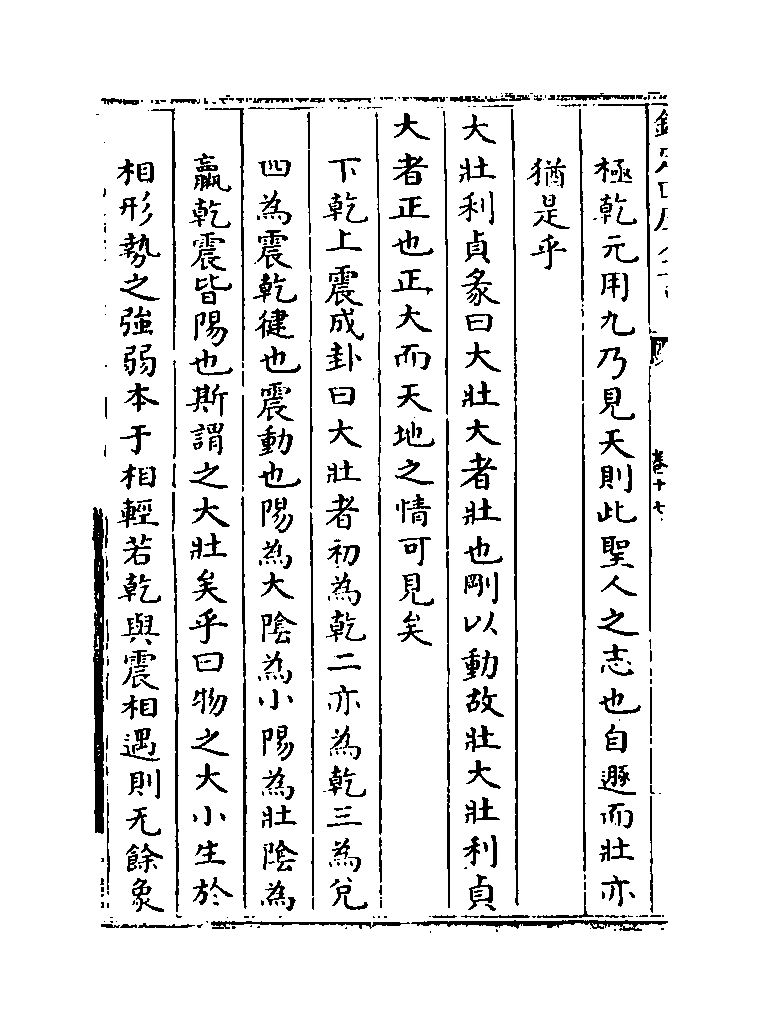 欽定四庫全書
卷十七
極乾元用九乃見天則此聖人之志也自遯而壯亦
猶是乎
大壯利貞彖曰大壯大者壯也剛以動故壯大壯利貞
大者正也正大而天地之情可見矣
下乾上震成卦曰大壯者初為乾二亦為乾三為兌
四為震乾健也震動也陽為大陰為小陽為壯陰為
羸乾震皆陽也斯謂之大壯矣乎曰物之大小生於
相形勢之強弱本于相輕若乾與震相遇則无餘象